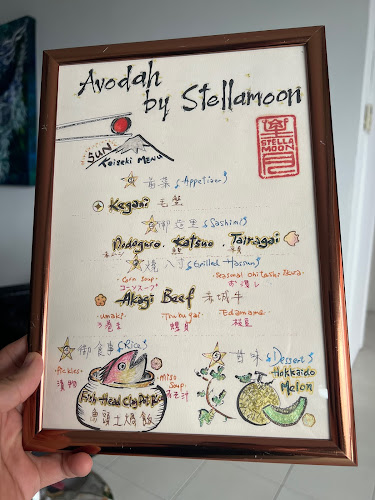 Avodah
by Stellamoon
SUN
Kaiseki MENU
STELLA
MOON
前菜 Appetizer
Kegani 毛蟹
御造里 Sashimi
Nodoguro Katsuo Tairagai
焼八寸 Grilled Hassun
Corn Soup Seasonal Ohitashi Ikura
コーンスープ お浸し
Akagi Beef 赤城牛
Umaki Tsubugai Edamame
う巻き 螺貝 枝豆
御食事 Rice
甘味 Dessert
Pickles
漬物
Miso
Soup
Fish Head Clay Pot Rice
魚頭土鍋飯
Hokkaido
Melon